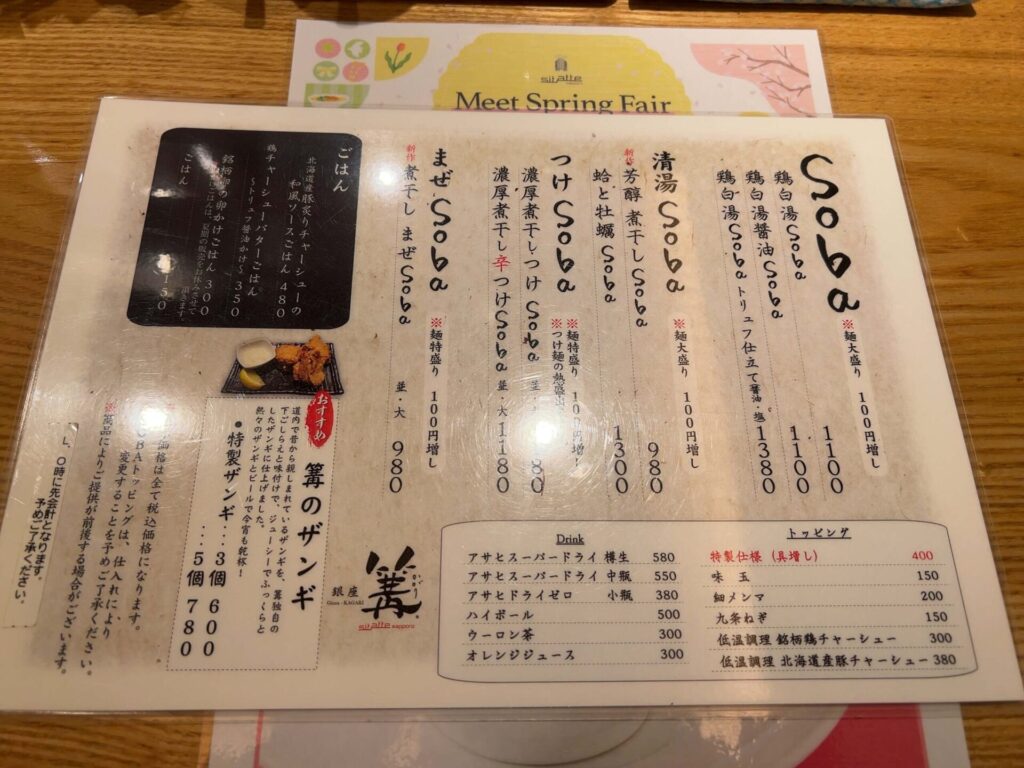 sitatte
Meet Spring Fair
Soba
※麺大盛り 100円増し
鶏白湯Soba 1100
鶏白湯醤油Soba 1100
鶏白湯Sobaトリュフ仕立て醤油・塩 1380
清湯Soba
※麺大盛り 100円増し
新作 芳醇 煮干しSoba 980
蛤と牡蠣Soba 1300
つけSoba
※麺特盛り 100円増し
※つけ麺の熱盛
濃厚煮干しつけSoba 並・大 80
濃厚煮干し辛つけSoba 並・大 1180
まぜSoba
※麺特盛り 100円増し
新作 煮干しまぜSoba 並・大 980
ごはん
北海道産豚炙りチャーシューの
和風ソースごはん 480
鶏チャーシューバターごはん
〜トリュフ醤油かけ〜 350
銘柄卵の卵かけごはん 300
ごはんは、夏期の販売をお休みさせて
頂きます
ごはん 150
おすすめ
篝のザンギ
道内で昔から親しまれているザンギを、篝独自の
下ごしらえと味付けで、ジューシーでふっくらと
したザンギに仕上げました。
熱々のザンギとビールで今宵も乾杯!
●特製ザンギ…3個 600
…5個 780
価格は全て税込価格になります。
BAトッピングは、仕入れにより
変更することを予めご了承ください。
※商品によりご提供が前後する場合がございます。
L.O時に先会計となります。
予めご了承ください。
銀座
Ginza - KAGARI
篝
かがり
sitatte sapporo
Drink
アサヒスーパードライ 樽生 580
アサヒスーパードライ 中瓶 550
アサヒドライゼロ 小瓶 380
ハイボール 500
ウーロン茶 300
オレンジジュース 300
トッピング
特製仕様(具増し) 400
味 玉 150
細メンマ 200
九条ねぎ 150
低温調理 銘柄鶏チャーシュー 300
低温調理 北海道産豚チャーシュー 380